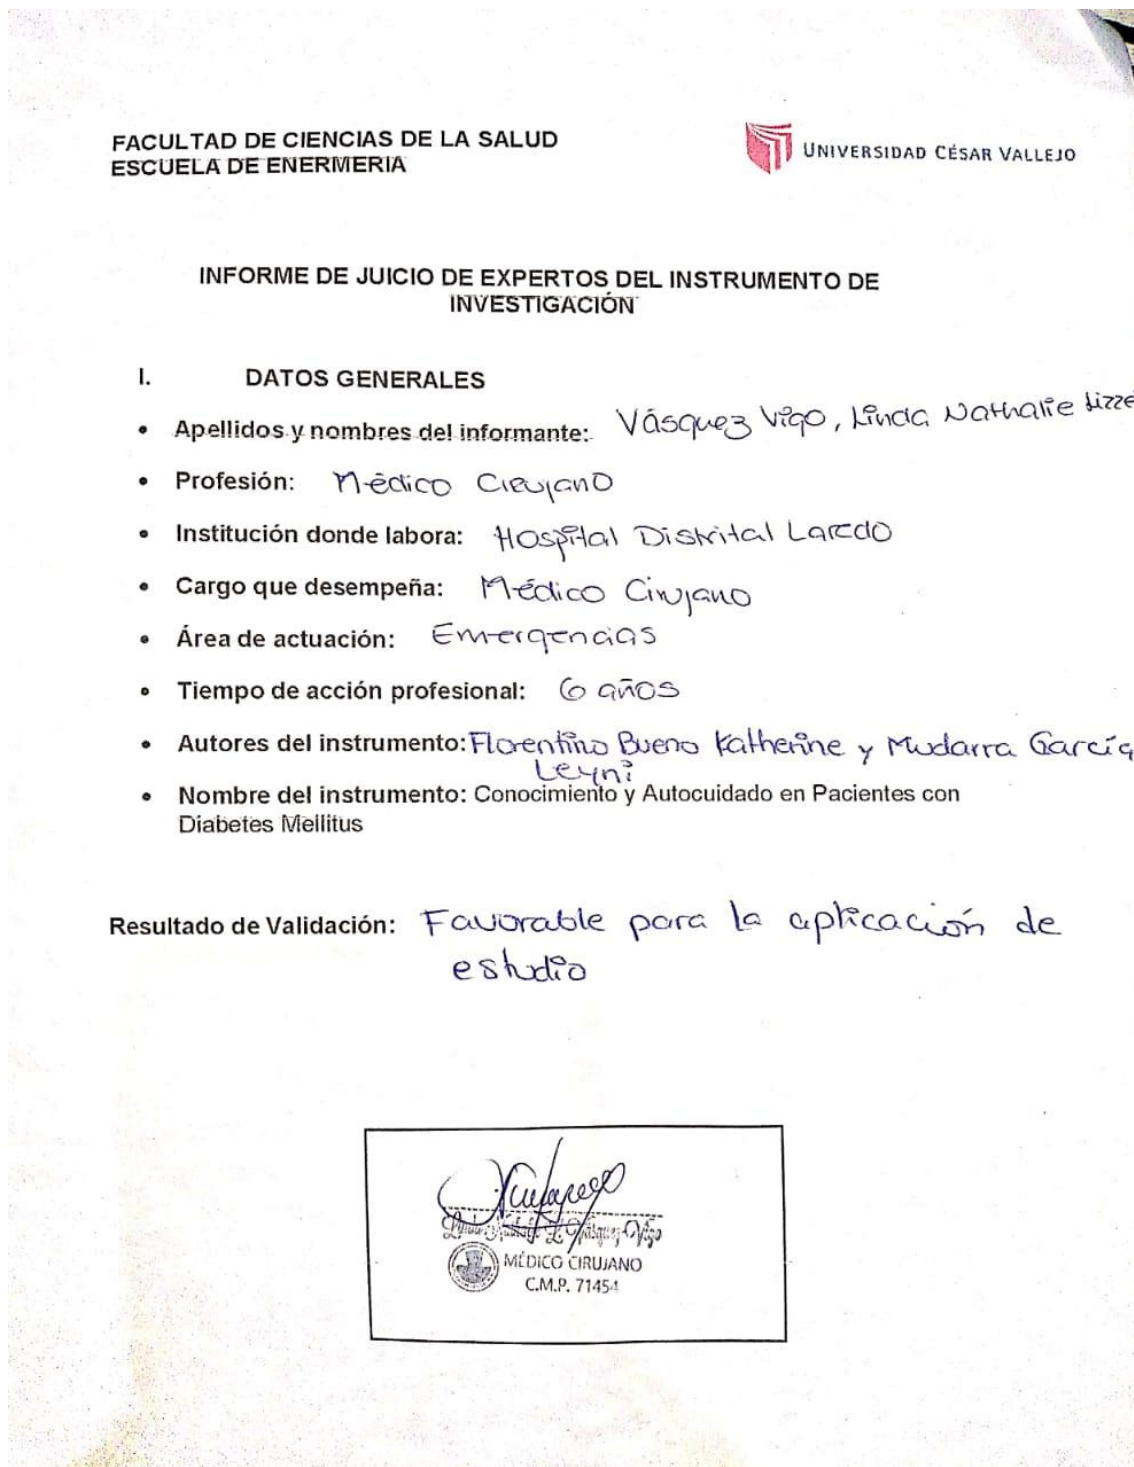 FACULTAD DE CIENCIAS DE LA SALUD
ESCUELA DE ENERMERIA
UNIVERSIDAD CÉSAR VALLEJO
INFORME DE JUICIO DE EXPERTOS DEL INSTRUMENTO DE
INVESTIGACIÓN
I. DATOS GENERALES
• Apellidos y nombres del informante: Vásquez Vigo, Linda Nathalie Lizze
• Profesión: Médico Cirujano
• Institución donde labora: Hospital Distrital Laredo
• Cargo que desempeña: Médico Cirujano
• Área de actuación: Emergencias
• Tiempo de acción profesional: 6 años
• Autores del instrumento: Florentino Bueno Katherine y Mudarra García
Leyni
• Nombre del instrumento: Conocimiento y Autocuidado en Pacientes con
Diabetes Mellitus
Resultado de Validación: Favorable para la aplicación de
estudio
Vásquez Vigo
MÉDICO CIRUJANO
C.M.P. 71454